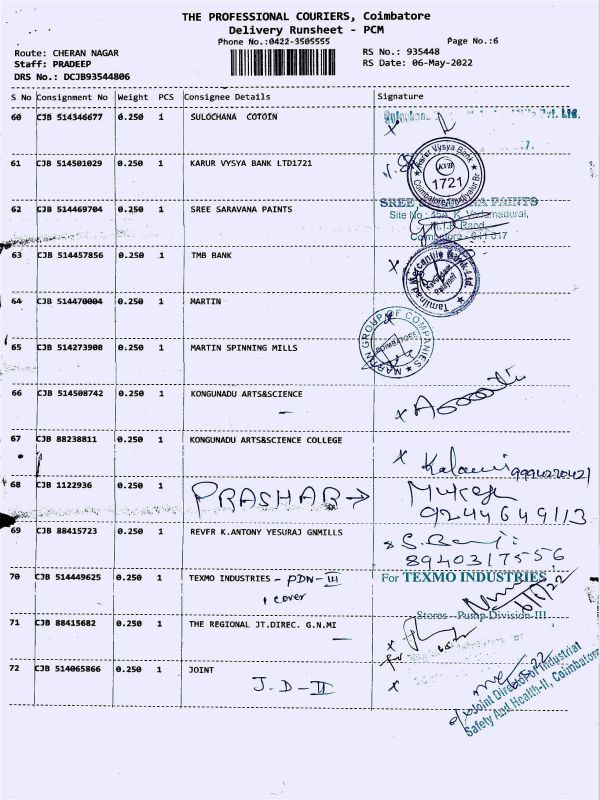 THE PROFESSIONAL COURIERS, Coimbatore
Delivery Runsheet - PCM
Phone No.:0422-3505555
Page No.:6
Route: CHERAN NAGAR
RS No.: 935448
Staff: PRADEEP
RS Date: 06-May-2022
DRS No.: DCJB93544806
S No Consignment No Weight PCS Consignee Details Signature
60 CJB 514346677 0.250 1 SULOCHANA COTOIN
Pvt. Ltd.
61 CJB 514501029 0.250 1 KARUR VYSYA BANK LTD1721
Karur Vysya Bank
KVB
1721
62 CJB 514469704 0.250 1 SREE SARAVANA PAINTS
SREE PAINTS
Site No : 45A, K. Vadamadurai,
Coimbatore - 641 017
63 CJB 514457856 0.250 1 TMB BANK
Tamilnad Mercantile Bank Ltd.
64 CJB 514470004 0.250 1 MARTIN
MARTIN GROUP OF COMPANIES
COIMBATORE
65 CJB 514273908 0.250 1 MARTIN SPINNING MILLS
66 CJB 514508742 0.250 1 KONGUNADU ARTS&SCIENCE
67 CJB 88238811 0.250 1 KONGUNADU ARTS&SCIENCE COLLEGE
68 CJB 1122936 0.250 1 PRASHAR →
9244649113
69 CJB 88415723 0.250 1 REVFR K.ANTONY YESURAJ GNMILLS
8940317556
70 CJB 514449625 0.250 1 TEXMO INDUSTRIES - PDN-III
+ cover
For TEXMO INDUSTRIES,
Stores - Pump Division-III
71 CJB 88415682 0.250 1 THE REGIONAL JT.DIREC. G.N.MI
72 CJB 514065866 0.250 1 JOINT
J.D-II
Joint Director of Industrial
Safety And Health-II, Coimbatore